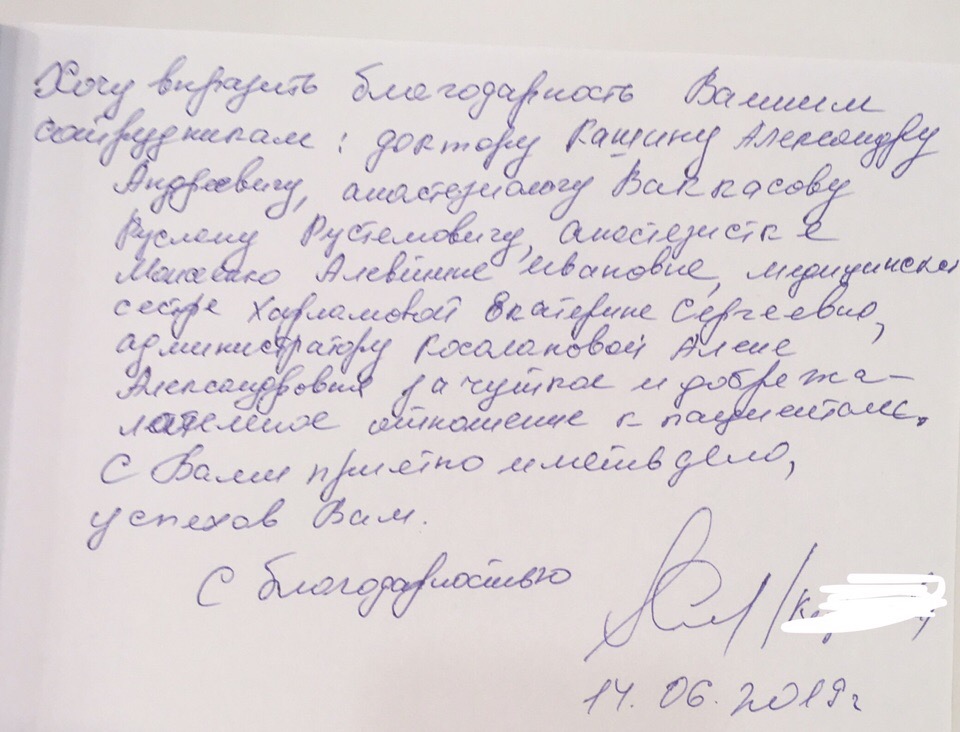 Хочу выразить благодарность Вашим
сотрудникам: доктору Кашину Александру
Андреевичу, анастезиологу Ваккасову
Руслану Рустемовичу, анастезистке
Алевтине Ивановне, медицинской
сестре Харламовой Екатерине Сергеевне,
администратору Косолаповой Алене
Александровне за чуткое и доброжела-
тельное отношение к пациентам.
С Вами приятно иметь дело,
успехов Вам.
С благодарностью
14.06.2019г